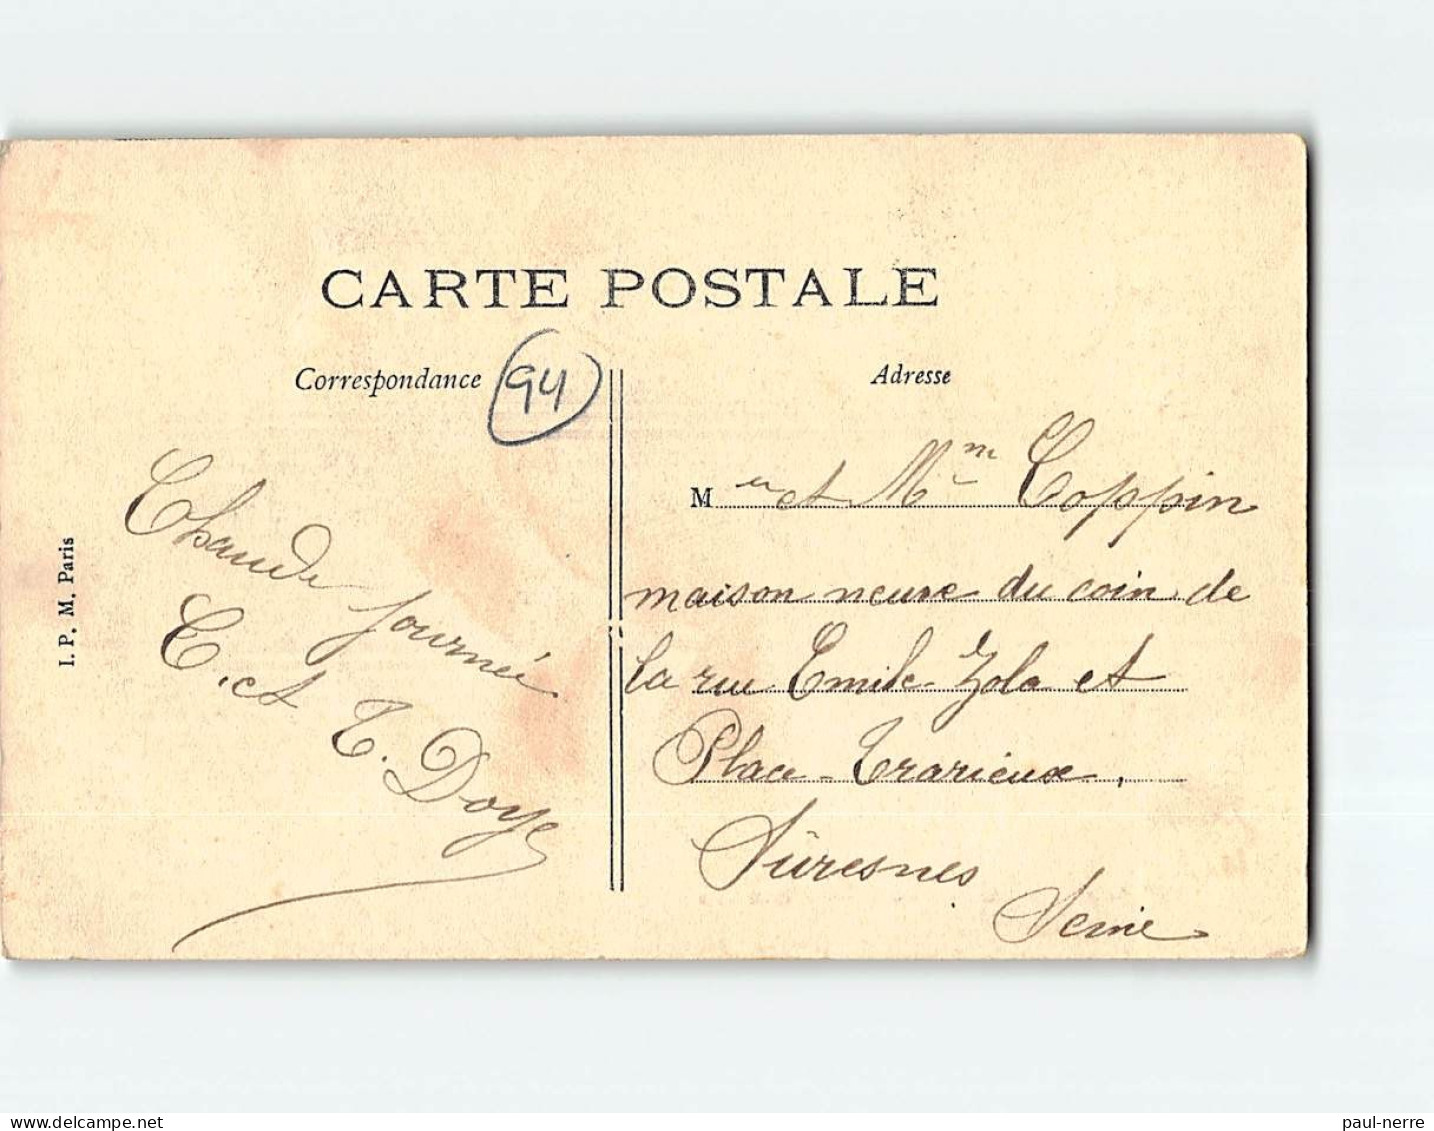 CARTE POSTALE
Correspondance
94
Adresse
Chaude
journée
C. et
T. Doye
M et Mme Coppin
maison neuve du coin de
la rue Emile Zola et
Place Trarieux,
Sûresnes
Seine
I. P. M. Paris
www.delcampe.net
paul-nerre